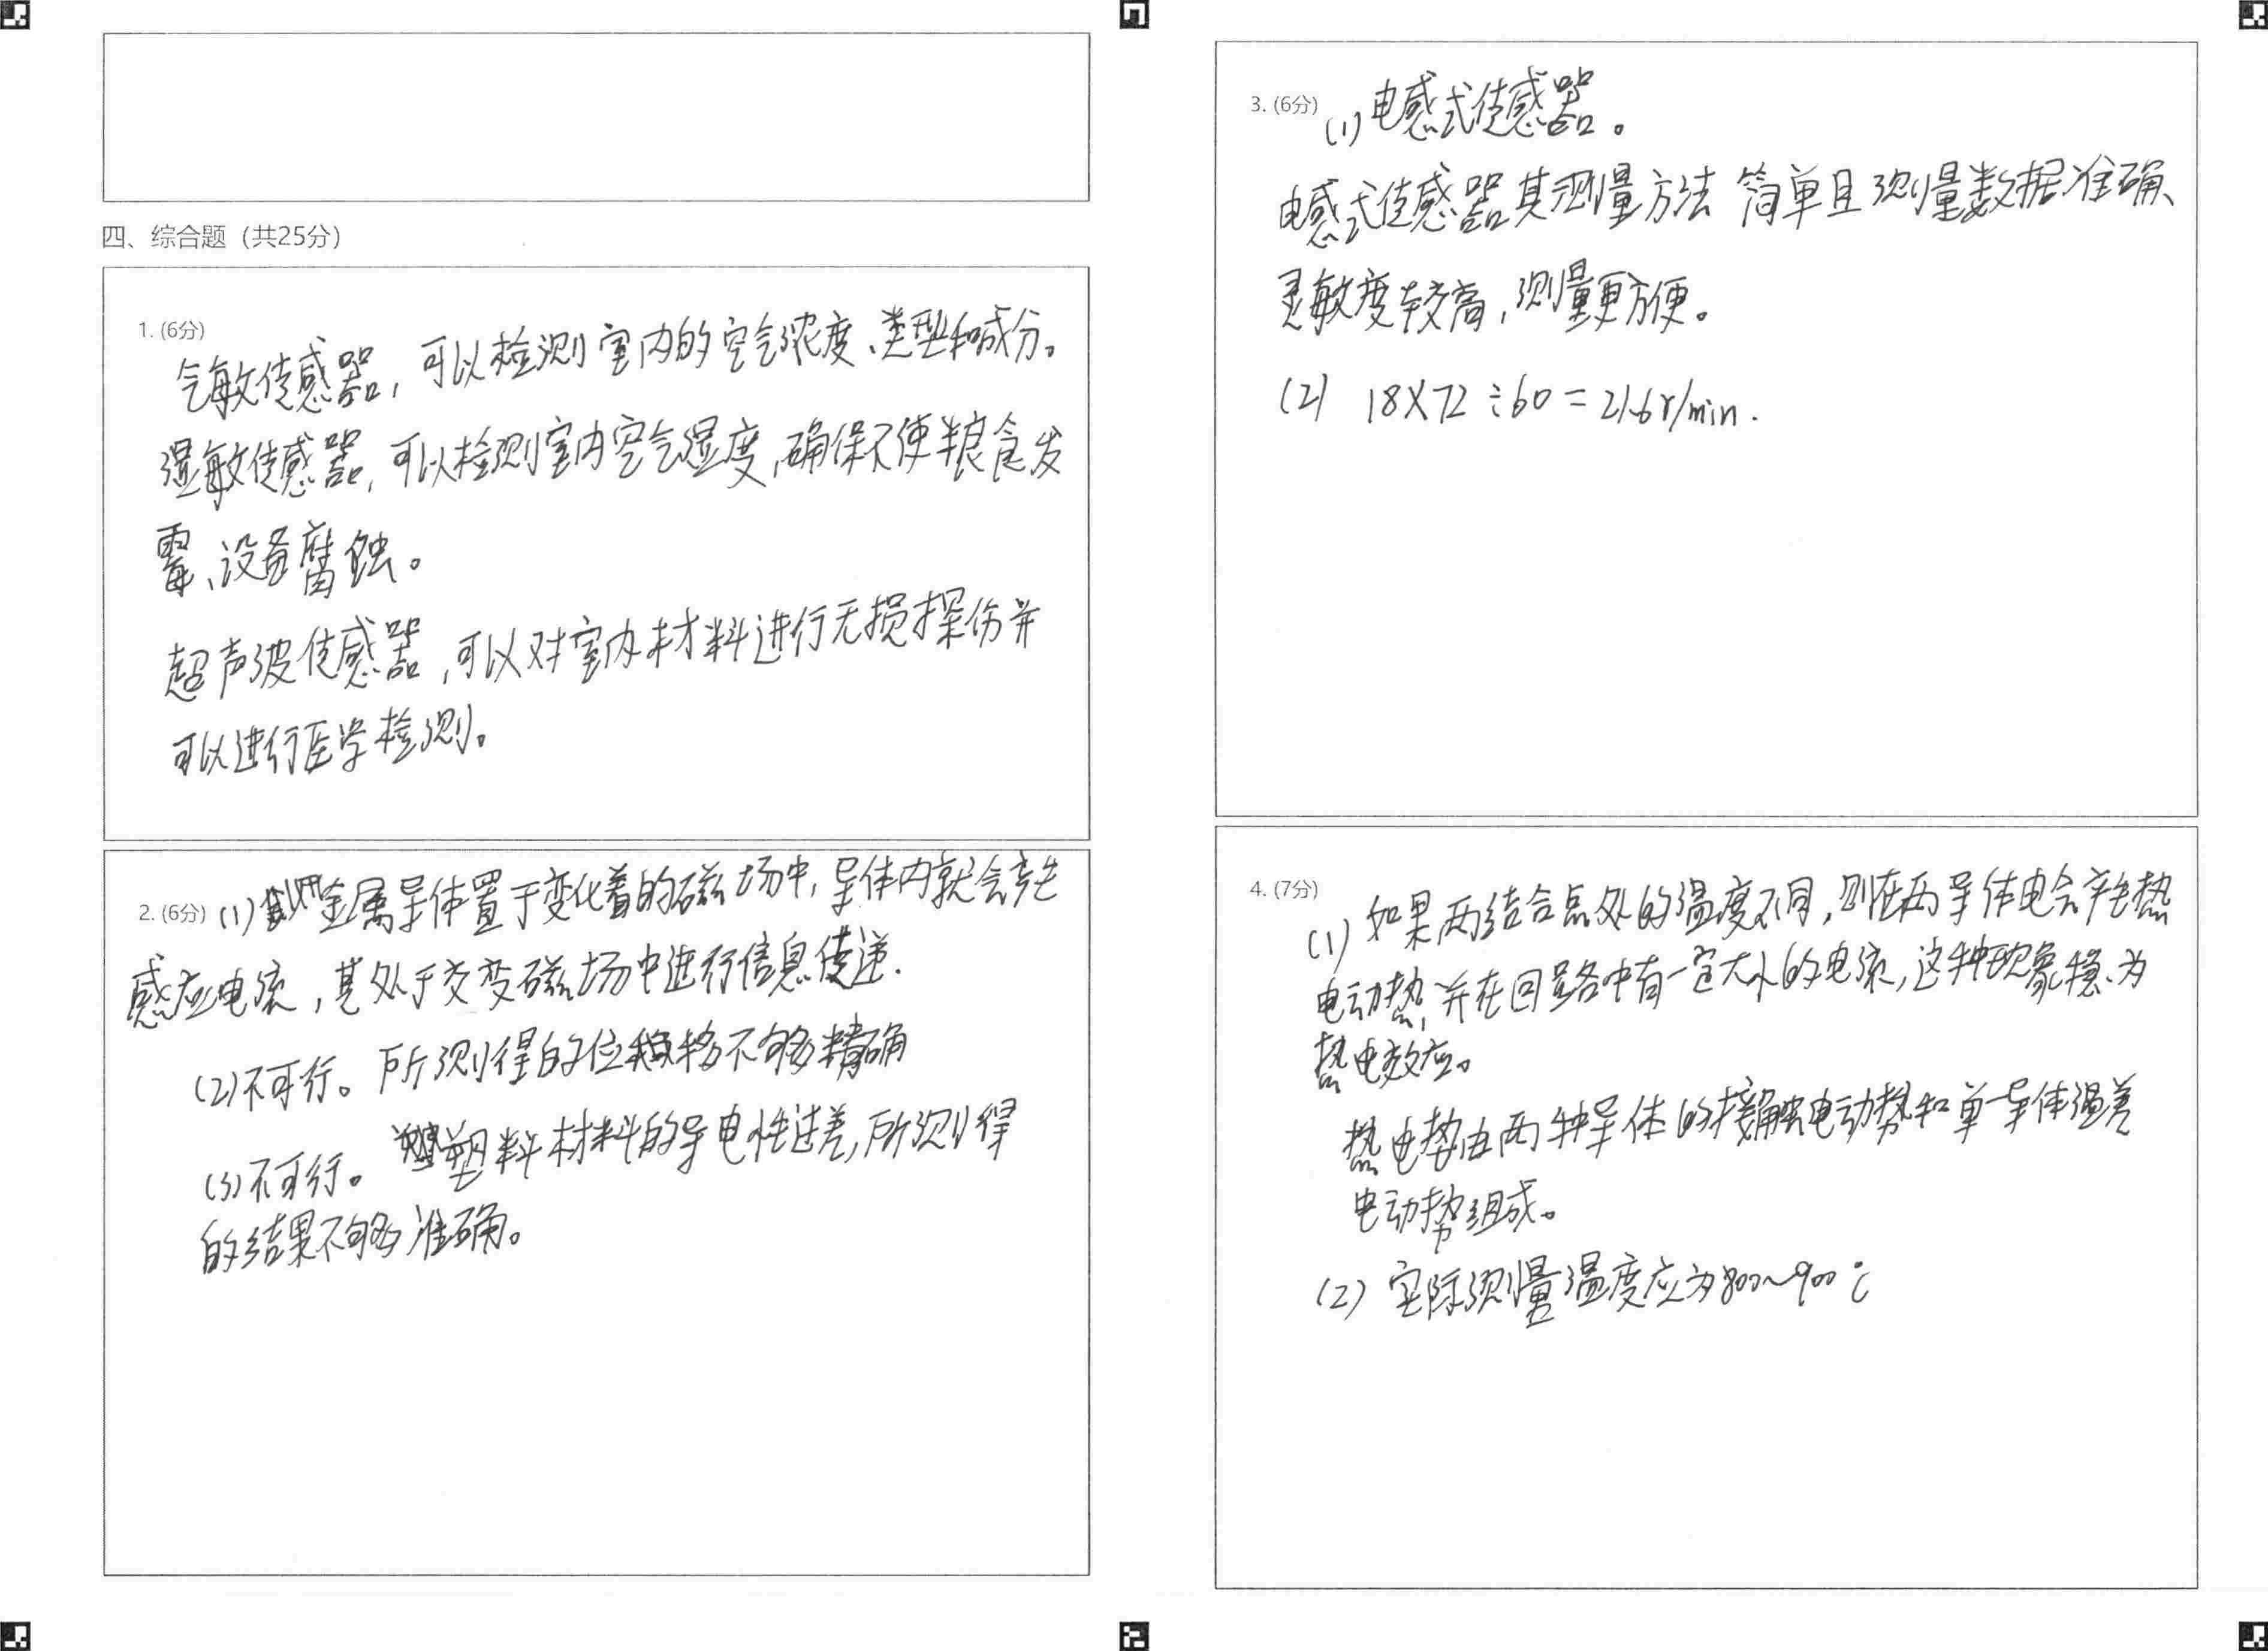 四、综合题（共25分）
1. (6分)
气敏传感器，可以检测室内的空气浓度、类型和成分。
湿敏传感器，可以检测室内空气湿度，确保不使粮食发
霉、设备腐蚀。
超声波传感器，可以对室内材料进行无损探伤并
可以进行医学检测。
2. (6分) (1) 金属导体置于变化着的磁场中，导体内就会产生
感应电流，其处于交变磁场中进行信息传递.
(2)不可行。所测得的位移不够精确
(3)不可行。塑料材料的导电性过差，所测得
的结果不够准确。
3. (6分) (1) 电感式传感器。
电感式传感器其测量方法简单且测量数据准确、
灵敏度较高，测量更方便。
(2) 18×72÷60=21.6r/min.
4. (7分) (1) 如果两结合点处的温度不同，则在两导体电会产生热
电动热，并在回路中有一定大小的电流，这种现象称为
热电效应。
热电势由两种导体的接触电动势和单一导体温差
电动势组成。
(2) 实际测量温度应为800~900℃